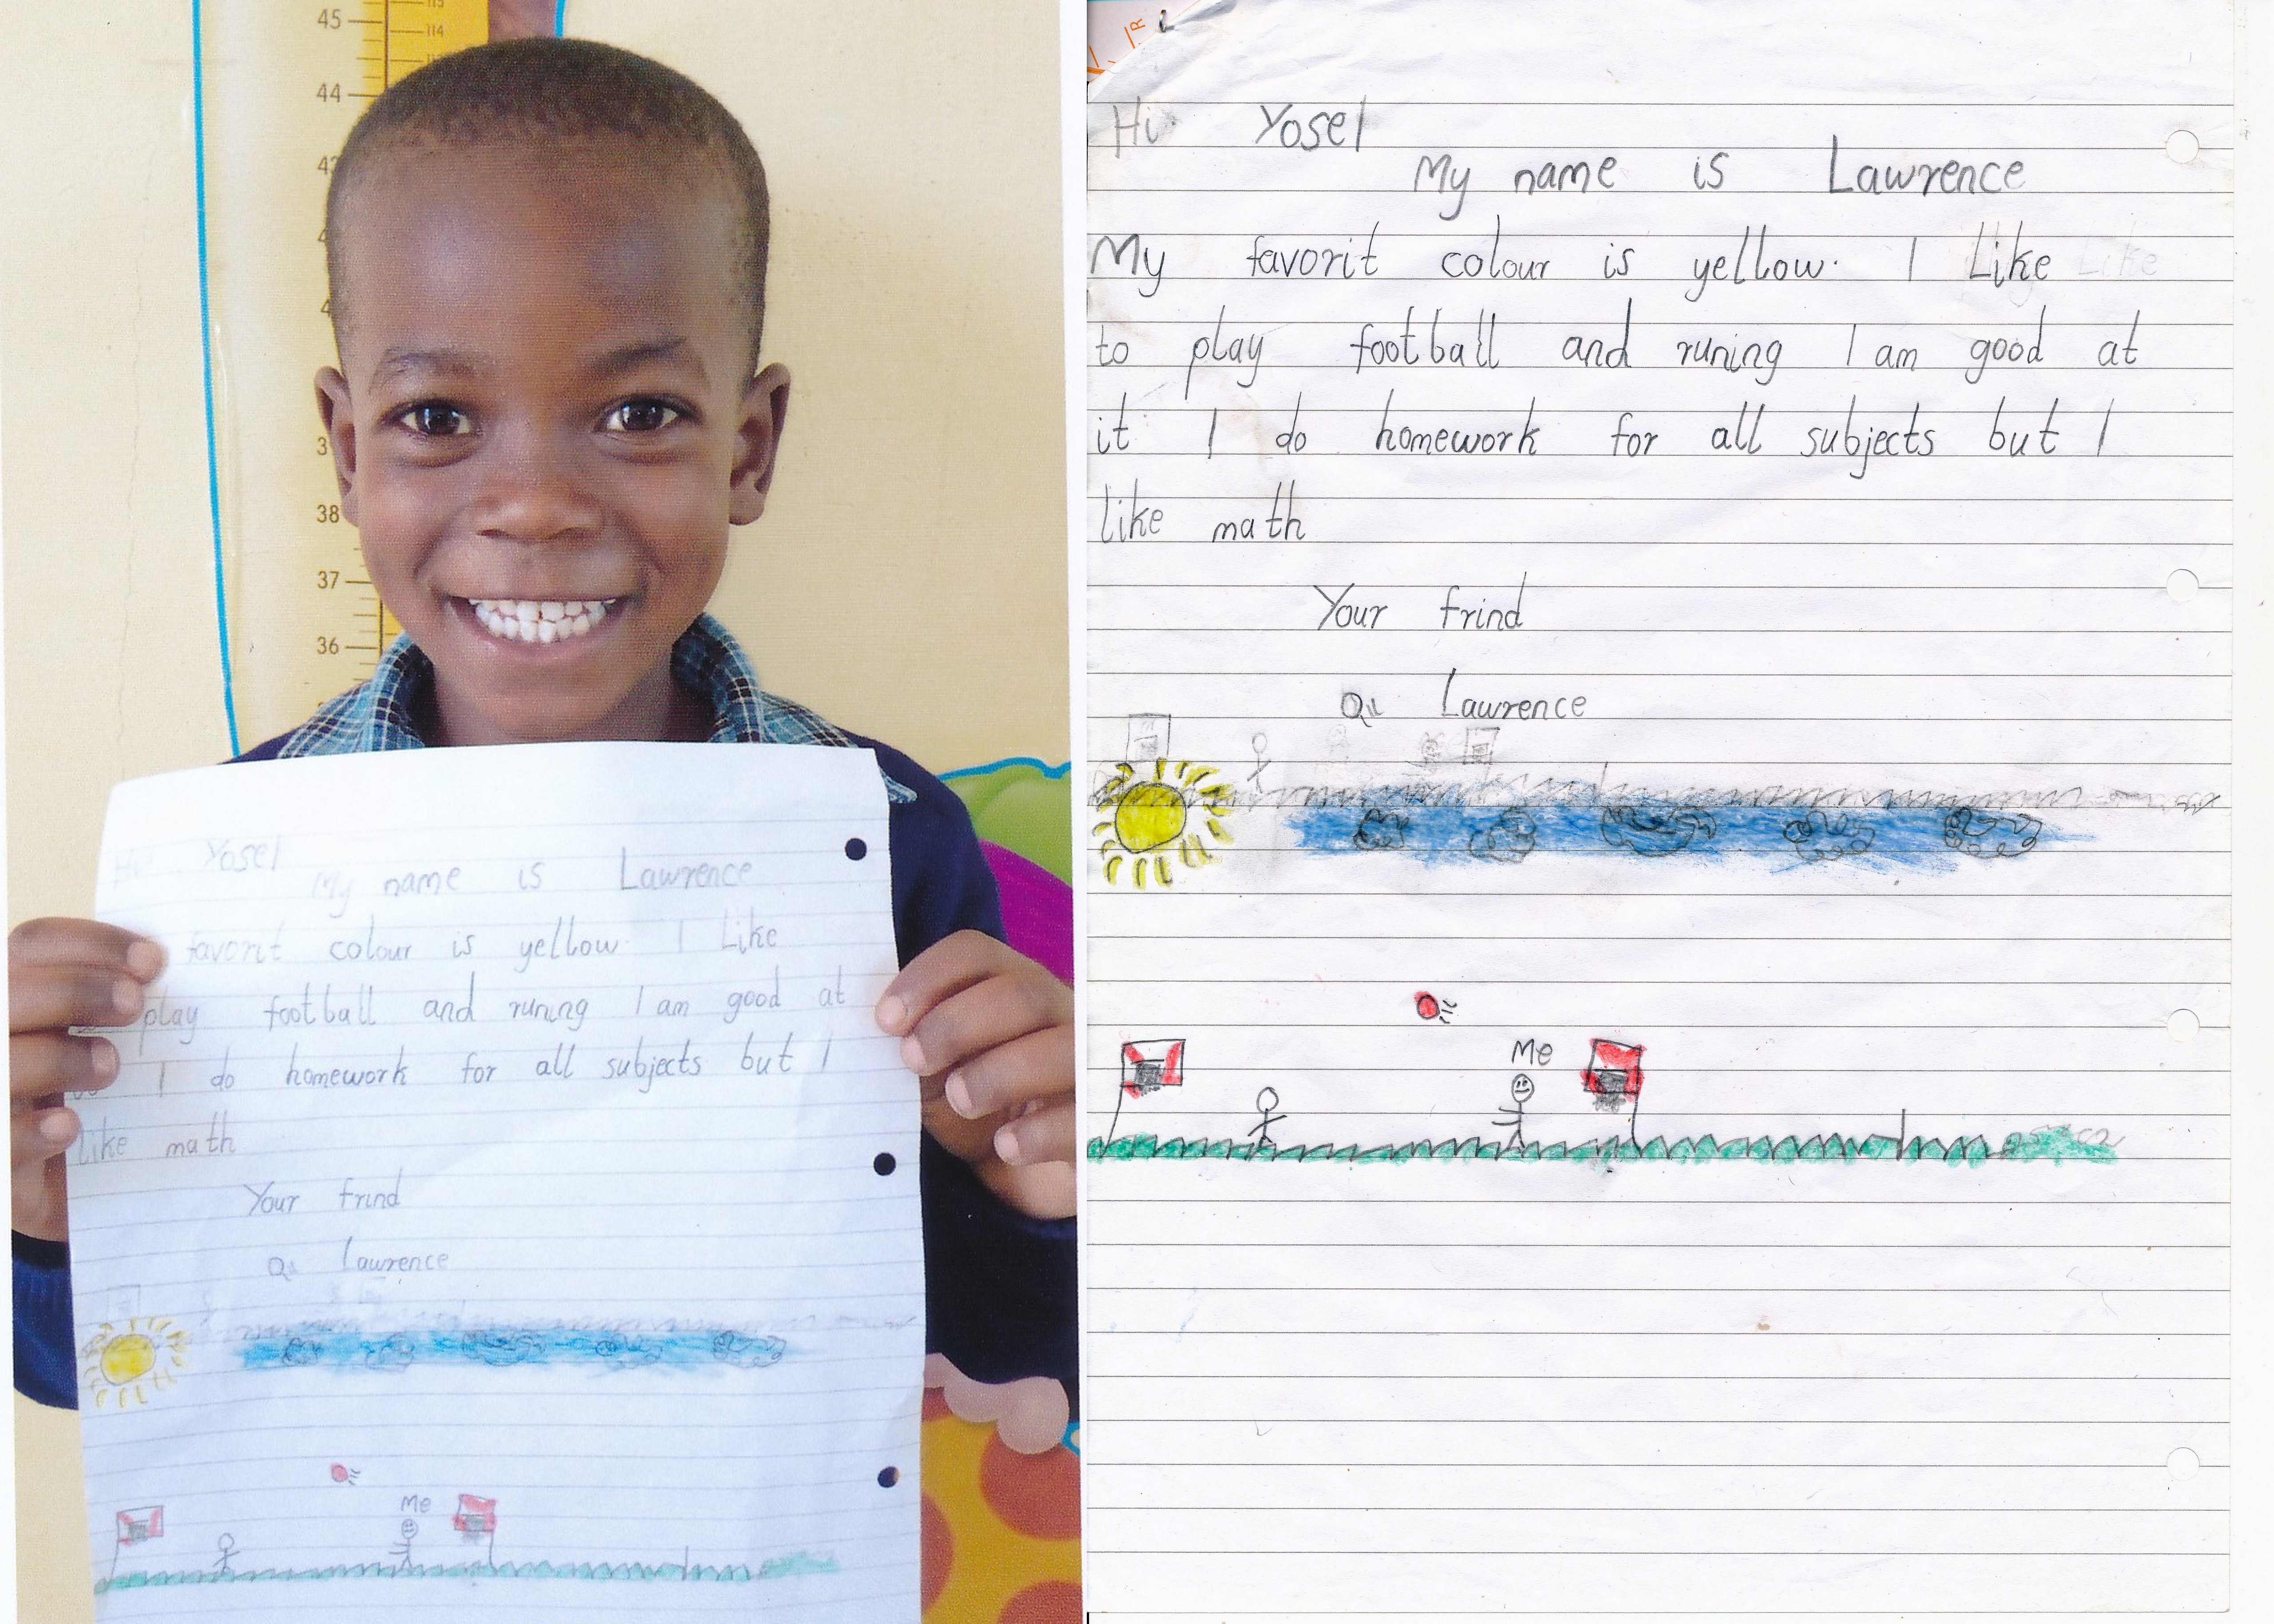 45
44
38
37
36
115
114
Hi Yosel
My name is Lawrence
favorit colour is yellow. I Like
play football and runing I am good at
I do homework for all subjects but I
like math
Your frind
Lawrence
Me
R
Hi Yosel
My name is Lawrence
My favorit colour is yellow. I Like Like
to play football and runing I am good at
it I do homework for all subjects but I
like math
Your frind
Lawrence
Me